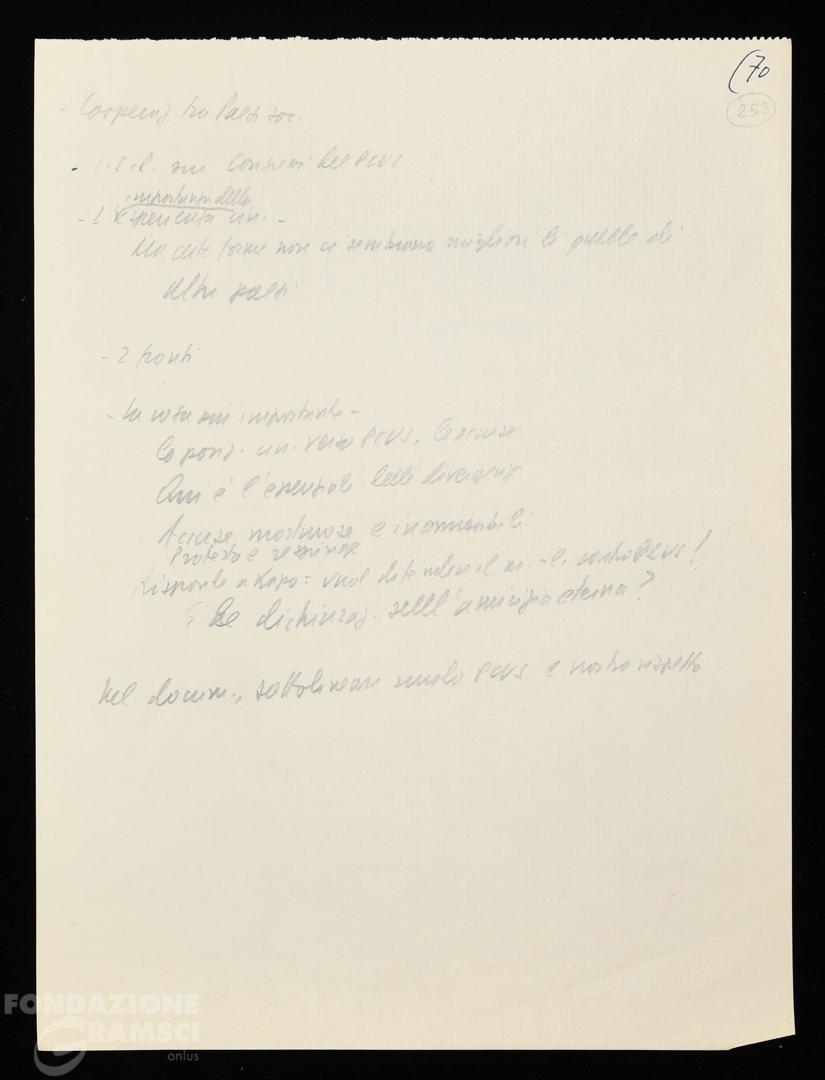 (70
253
- Cooperaz. tra Paesi soc.
- sui Congressi del PCUS
importanza della
- L'esperienza cin. -
Ma certe forme non ci sembrano migliori di quelle di
altri paesi
- 2 fronti
- La cosa più importante -
La posiz. cin. verso PCUS. Le accuse
Qui è l'essenziale delle divergenze
Accuse mostruose e inammissibili
Protesta e respinge
Risponde a Kapo = vuol difendere il m.-l. contro PCUS!
E le dichiaraz. sull'amicizia eterna?
Nel docum., sottolineare ruolo PCUS e nostro rispetto
FONDAZIONE
GRAMSCI
onlus